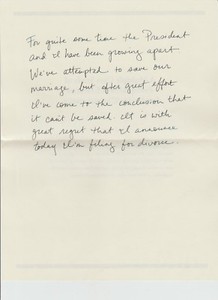 For quite some time the President
and I have been growing apart
We've attempted to save our
marriage, but after great effort
I've come to the conclusion that
it can't be saved. It is with
great regret that I announce
today I'm filing for divorce.